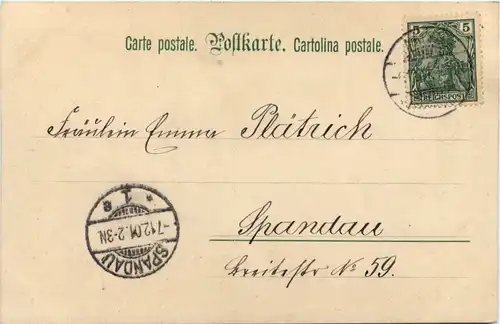 Carte postale. Postkarte. Cartolina postale.
5 5
REICHSPOST
Fräulein Emma Plätrich
Spandau
Breitestr № 59.
SPANDAU
-7.12.01. 2-3N.
* 1 e